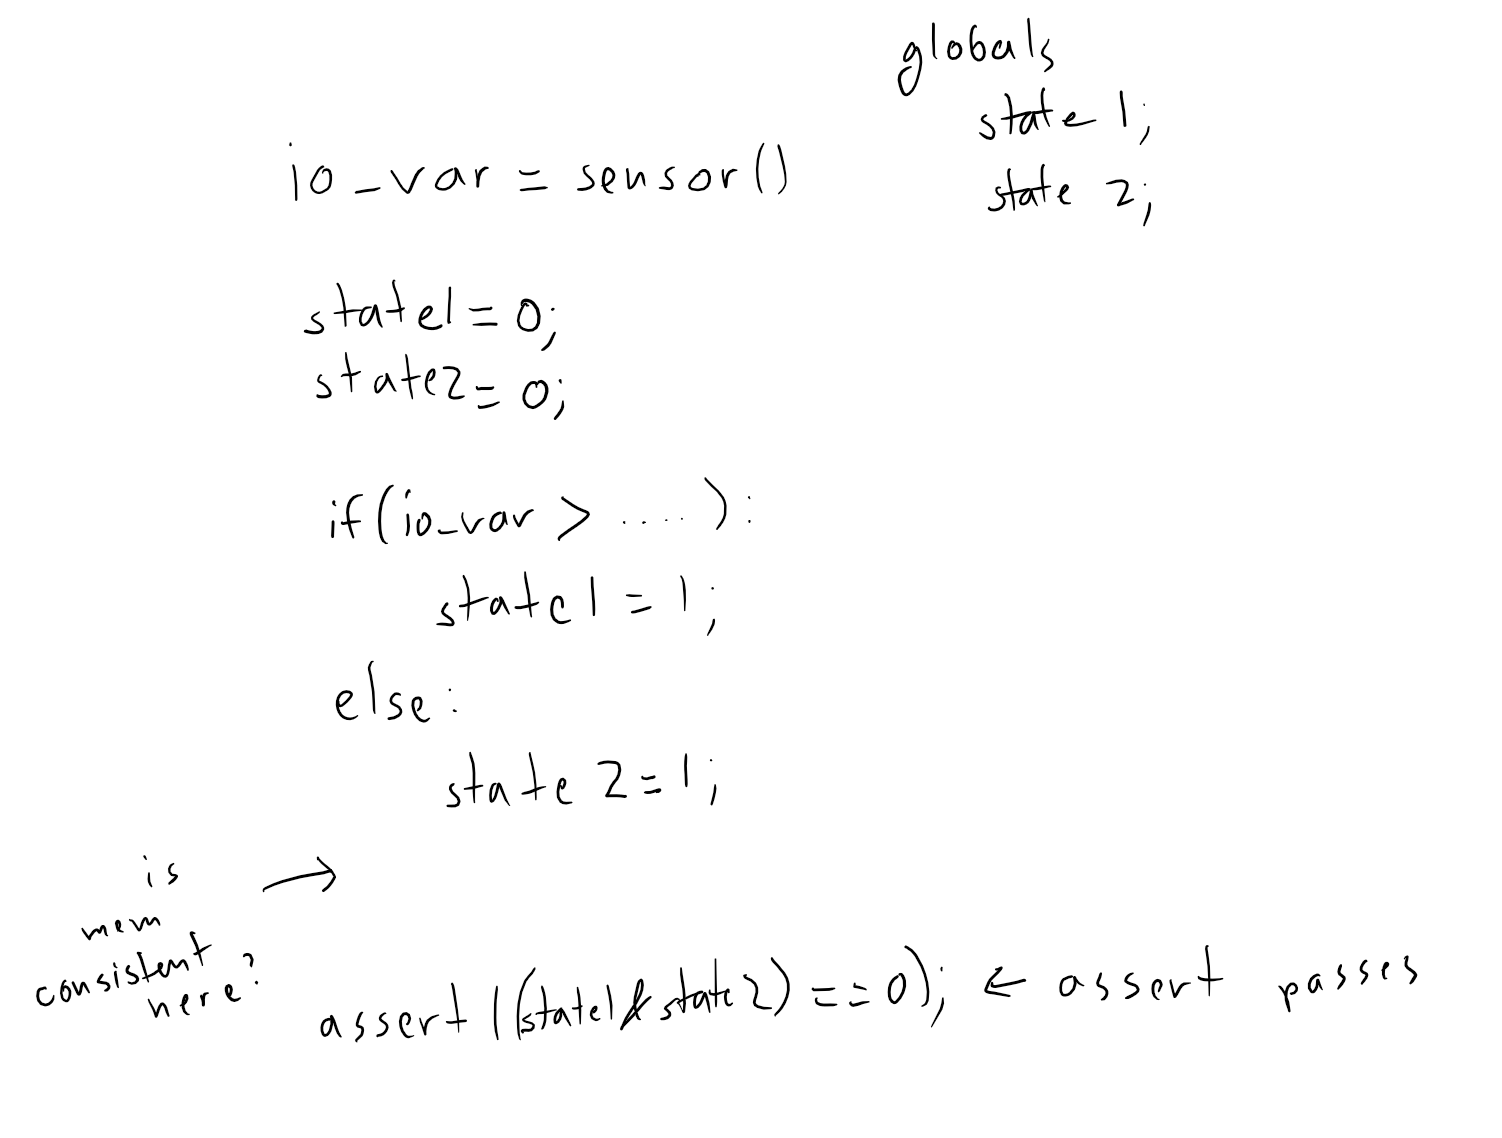 globals
state 1;
state 2;
io_var = sensor()
state1 = 0;
state2 = 0;
if(io_var > ....):
state1 = 1;
else:
state 2 = 1;
is
mem
consistent
here?
assert ((state1 & state2) == 0); ← assert passes